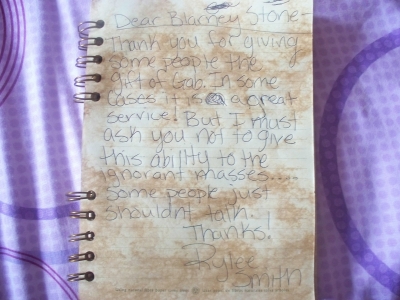 Dear Blarney Stone-
Thank you for giving
some people the
gift of Gab. In some
cases it is a great
service! But I must
ask you not to give
this ability to the
ignorant masses....
some people just
shouldnt talk.
Thanks!
Rylee
Smith